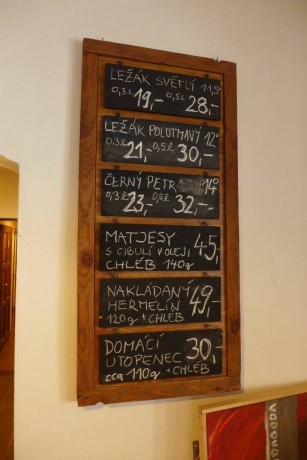 LEŽÁK SVĚTLÝ 11,5°
0,3l 19,- 0,5l 28,-
LEŽÁK POLOTMAVÝ 12°
0,3l 21,- 0,5l 30,-
ČERNÝ PETR 14°
0,3l 23,- 0,5l 32,-
MATJESY 45,-
S CIBULÍ V OLEJI
CHLÉB 140g
NAKLÁDANÝ 49,-
HERMELÍN
120g + CHLÉB
DOMÁCÍ 30,-
UTOPENEC
cca 110g + CHLÉB